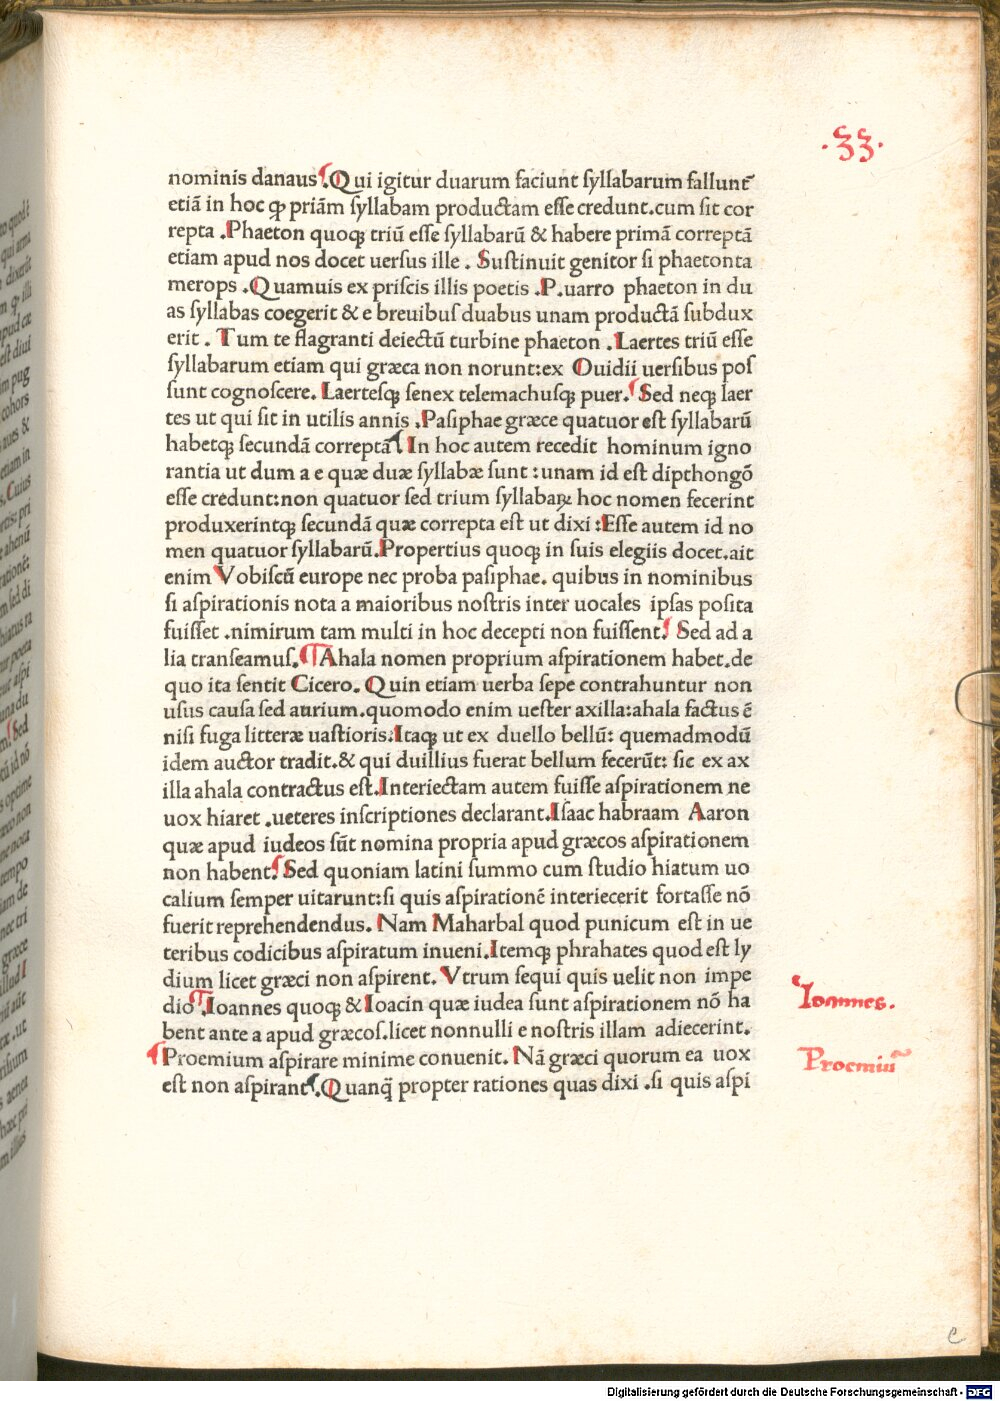 .33.
nominis danaus. Qui igitur duarum faciunt ſyllabarum fallunt̃
etiã in hoc ꝙ priãm ſyllabam productam eſſe credunt.cum ſit cor
repta .Phaeton quoqꝫ triũ eſſe ſyllabarũ & habere primã correptã
etiam apud nos docet uerſus ille . Suſtinuit genitor ſi phaetonta
merops .Quamuis ex priſcis illis poetis .P.uarro phaeton in du
as ſyllabas coegerit & e breuibuſ duabus unam productã ſubdux
erit . Tum te flagranti deiectũ turbine phaeton .Laertes triũ eſſe
ſyllabarum etiam qui græca non norunt:ex Ouidii uerſibus poſ
ſunt cognoſcere. Laerteſqꝫ ſenex telemachuſqꝫ puer. Sed neqꝫ laer
tes ut qui ſit in utilis annis .Paſiphae græce quatuor eſt ſyllabarũ
habetqꝫ ſecundã correptã In hoc autem recedit hominum igno
rantia ut dum a e quæ duæ ſyllabæ ſunt :unam id eſt dipthongõ
eſſe credunt:non quatuor ſed trium ſyllabaꝝ hoc nomen fecerint
produxerintqꝫ ſecundã quæ correpta eſt ut dixi :Eſſe autem id no
men quatuor ſyllabarũ.Propertius quoqꝫ in ſuis elegiis docet.ait
enim Vobiſcũ europe nec proba paſiphae. quibus in nominibus
ſi aſpirationis nota a maioribus noſtris inter uocales ipſas poſita
fuiſſet .nimirum tam multi in hoc decepti non fuiſſent. Sed ad a
lia tranſeamuſ. Ahala nomen proprium aſpirationem habet.de
quo ita ſentit Cicero. Quin etiam uerba ſepe contrahuntur non
uſus cauſa ſed aurium.quomodo enim ueſter axilla:ahala factus ẽ
niſi fuga litteræ uaſtioris.Itaqꝫ ut ex duello bellũ: quemadmodũ
idem auctor tradit.& qui duillius fuerat bellum fecerũt: ſic ex ax
illa ahala contractus eſt.Interiectam autem fuiſſe aſpirationem ne
uox hiaret .ueteres inſcriptiones declarant.Iſaac habraam Aaron
quæ apud iudeos ſũt nomina propria apud græcos aſpirationem
non habent. Sed quoniam latini ſummo cum ſtudio hiatum uo
calium ſemper uitarunt:ſi quis aſpirationẽ interiecerit fortaſſe nõ
fuerit reprehendendus. Nam Maharbal quod punicum eſt in ue
teribus codicibus aſpiratum inueni.Itemqꝫ phrahates quod eſt ly
dium licet græci non aſpirent. Vtrum ſequi quis uelit non impe
dio .Ioannes quoqꝫ & Ioacin quæ iudea ſunt aſpirationem nõ ha
bent ante a apud græcoſ.licet nonnulli e noſtris illam adiecerint.
Proemium aſpirare minime conuenit. Nã græci quorum ea uox
eſt non aſpirant .Quanq̃ propter rationes quas dixi .ſi quis aſpi
Ioannes.
Proemiũ
e
Digitalisierung gefördert durch die Deutsche Forschungsgemeinschaft - DFG